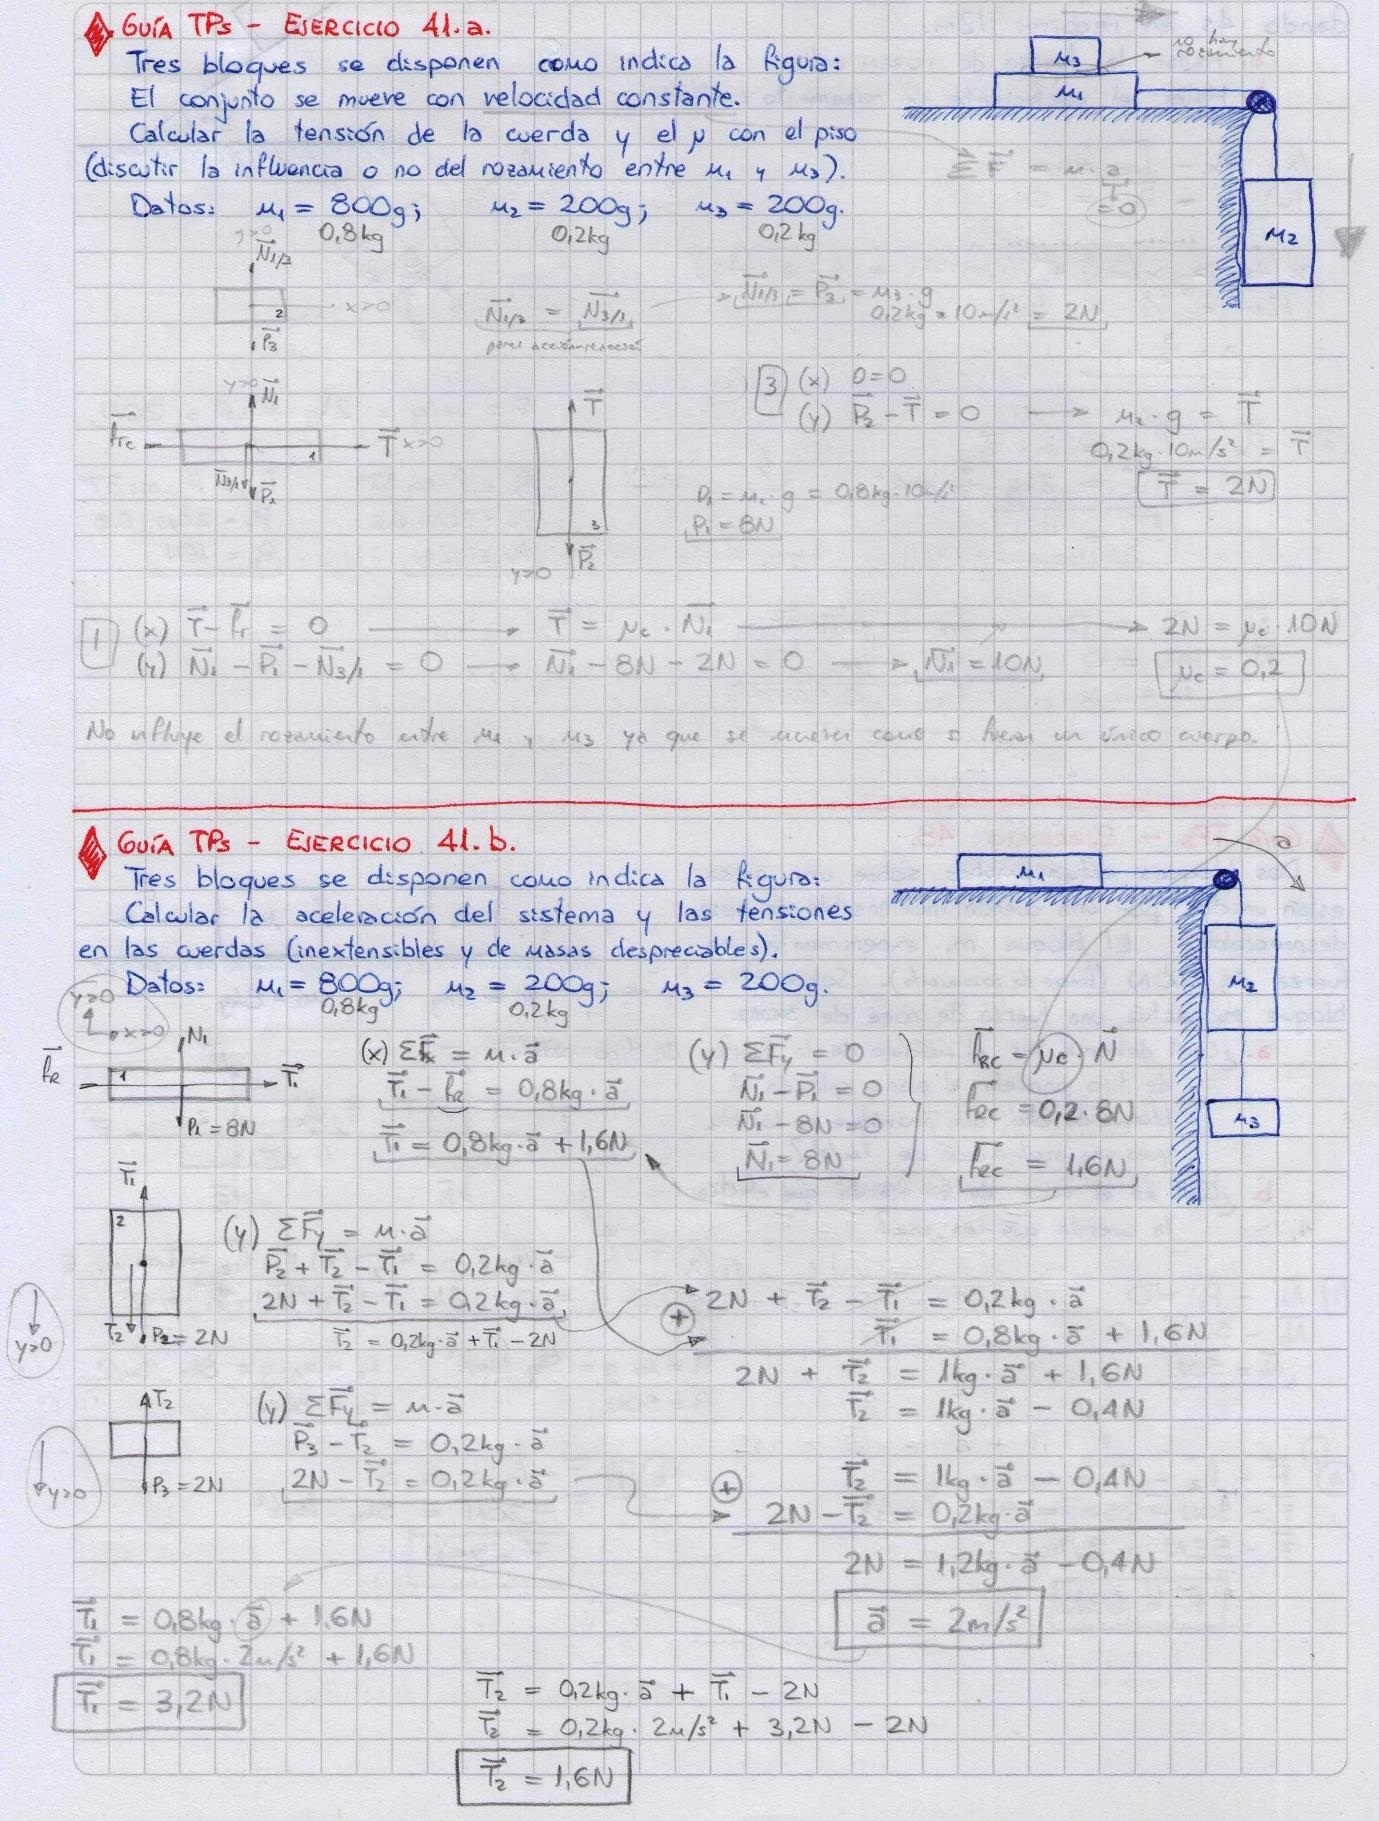 GUÍA TPs - EJERCICIO 41.a.
Tres bloques se disponen como indica la figura:
El conjunto se mueve con velocidad constante.
Calcular la tensión de la cuerda y el μ con el piso
(discutir la influencia o no del rozamiento entre m1 y m3).
Datos: m1 = 800g; m2 = 200g; m3 = 200g.
0,8kg 0,2kg 0,2kg
m3
no hay rozamiento
m1
m2
ΣF = m.a
=0
y>0
N1/3
x>0
2
P3
N1/3 = N3/1
pares acción-reacción
N1/3 = P3 = m3.g
0,2kg.10m/s² = 2N
y>0 N1
frc T x>0
1
N3/1 P1
T
3
P2
y>0
3 (x) 0=0
(y) P2 - T = 0 → m2.g = T
0,2kg.10m/s² = T
T = 2N
P1 = m1.g = 0,8kg.10m/s²
P1 = 8N
1 (x) T - fr = 0 → T = μc.N1 → 2N = μc.10N
(y) N1 - P1 - N3/1 = 0 → N1 - 8N - 2N = 0 → N1 = 10N
μc = 0,2
No influye el rozamiento entre m1 y m3 ya que se mueven como si fueran un único cuerpo.
GUÍA TPs - EJERCICIO 41.b.
Tres bloques se disponen como indica la figura:
Calcular la aceleración del sistema y las tensiones
en las cuerdas (inextensibles y de masas despreciables).
Datos: m1 = 800g; m2 = 200g; m3 = 200g.
0,8kg 0,2kg
m1
a
m2
m3
y>0
x>0
N1
fR 1 T1
P1 = 8N
(x) ΣFx = m.a
T1 - fR = 0,8kg.a
T1 = 0,8kg.a + 1,6N
(y) ΣFy = 0
N1 - P1 = 0
N1 - 8N = 0
N1 = 8N
fRC = μc.N
fRC = 0,2.8N
fRC = 1,6N
T1
2
T2 P2 = 2N
y>0
(y) ΣFy = m.a
P2 + T2 - T1 = 0,2kg.a
2N + T2 - T1 = 0,2kg.a
T2 = 0,2kg.a + T1 - 2N
+ 2N + T2 - T1 = 0,2kg.a
T1 = 0,8kg.a + 1,6N
2N + T2 = 1kg.a + 1,6N
T2 = 1kg.a - 0,4N
T2
P3 = 2N
y>0
(y) ΣFy = m.a
P3 - T2 = 0,2kg.a
2N - T2 = 0,2kg.a
+ T2 = 1kg.a - 0,4N
2N - T2 = 0,2kg.a
2N = 1,2kg.a - 0,4N
a = 2m/s²
T1 = 0,8kg.a + 1.6N
T1 = 0,8kg.2m/s² + 1,6N
T1 = 3,2N
T2 = 0,2kg.a + T1 - 2N
T2 = 0,2kg.2m/s² + 3,2N - 2N
T2 = 1,6N